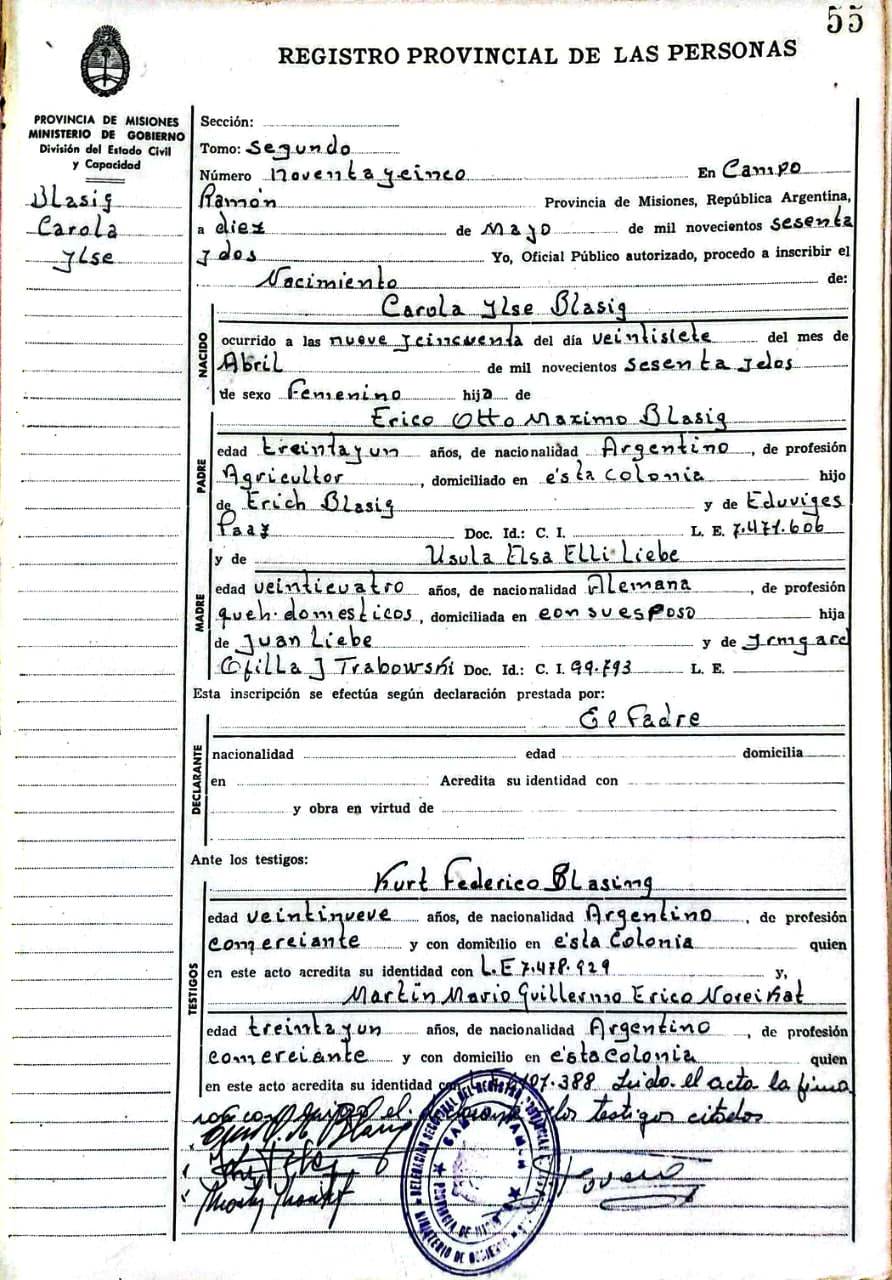 55
REGISTRO PROVINCIAL DE LAS PERSONAS
PROVINCIA DE MISIONES
MINISTERIO DE GOBIERNO
División del Estado Civil
y Capacidad
Blasig
Carola
Ylse
Sección:
Tomo: Segundo
Número noventa y cinco En Campo
Ramón Provincia de Misiones, República Argentina,
a diez de Mayo de mil novecientos sesenta
y dos Yo, Oficial Público autorizado, procedo a inscribir el
Nacimiento de:
Carola Ylse Blasig
NACIDO
ocurrido a las nueve y cincuenta del día veintisiete del mes de
Abril de mil novecientos sesenta y dos
de sexo Femenino hija de
Erico Otto Maximo Blasig
PADRE
edad treinta y un años, de nacionalidad Argentino, de profesión
Agricultor, domiciliado en ésta colonia hijo
de Erich Blasig y de Eduviges
Paaz Doc. Id.: C. I. L. E. 7.471.606
y de Usula Elsa Elli Liebe
MADRE
edad veinticuatro años, de nacionalidad Alemana, de profesión
queh. domesticos, domiciliada en con su esposo hija
de Juan Liebe y de Irmgard
Trabowski Doc. Id.: C. I. 99.793 L. E.
Esta inscripción se efectúa según declaración prestada por:
El Padre
DECLARANTE
nacionalidad edad domicilia
en Acredita su identidad con
y obra en virtud de
Ante los testigos:
Kurt Federico Blasing
TESTIGOS
edad veintinueve años, de nacionalidad Argentino, de profesión
comerciante y con domicilio en ésta Colonia quien
en este acto acredita su identidad con L.E 7.478.929 y,
Martín Mario Guillermo Erico Noreikat
edad treinta y un años, de nacionalidad Argentino, de profesión
comerciante y con domicilio en ésta colonia quien
en este acto acredita su identidad 107.388 Leido el acta la firma
el los testigos citados